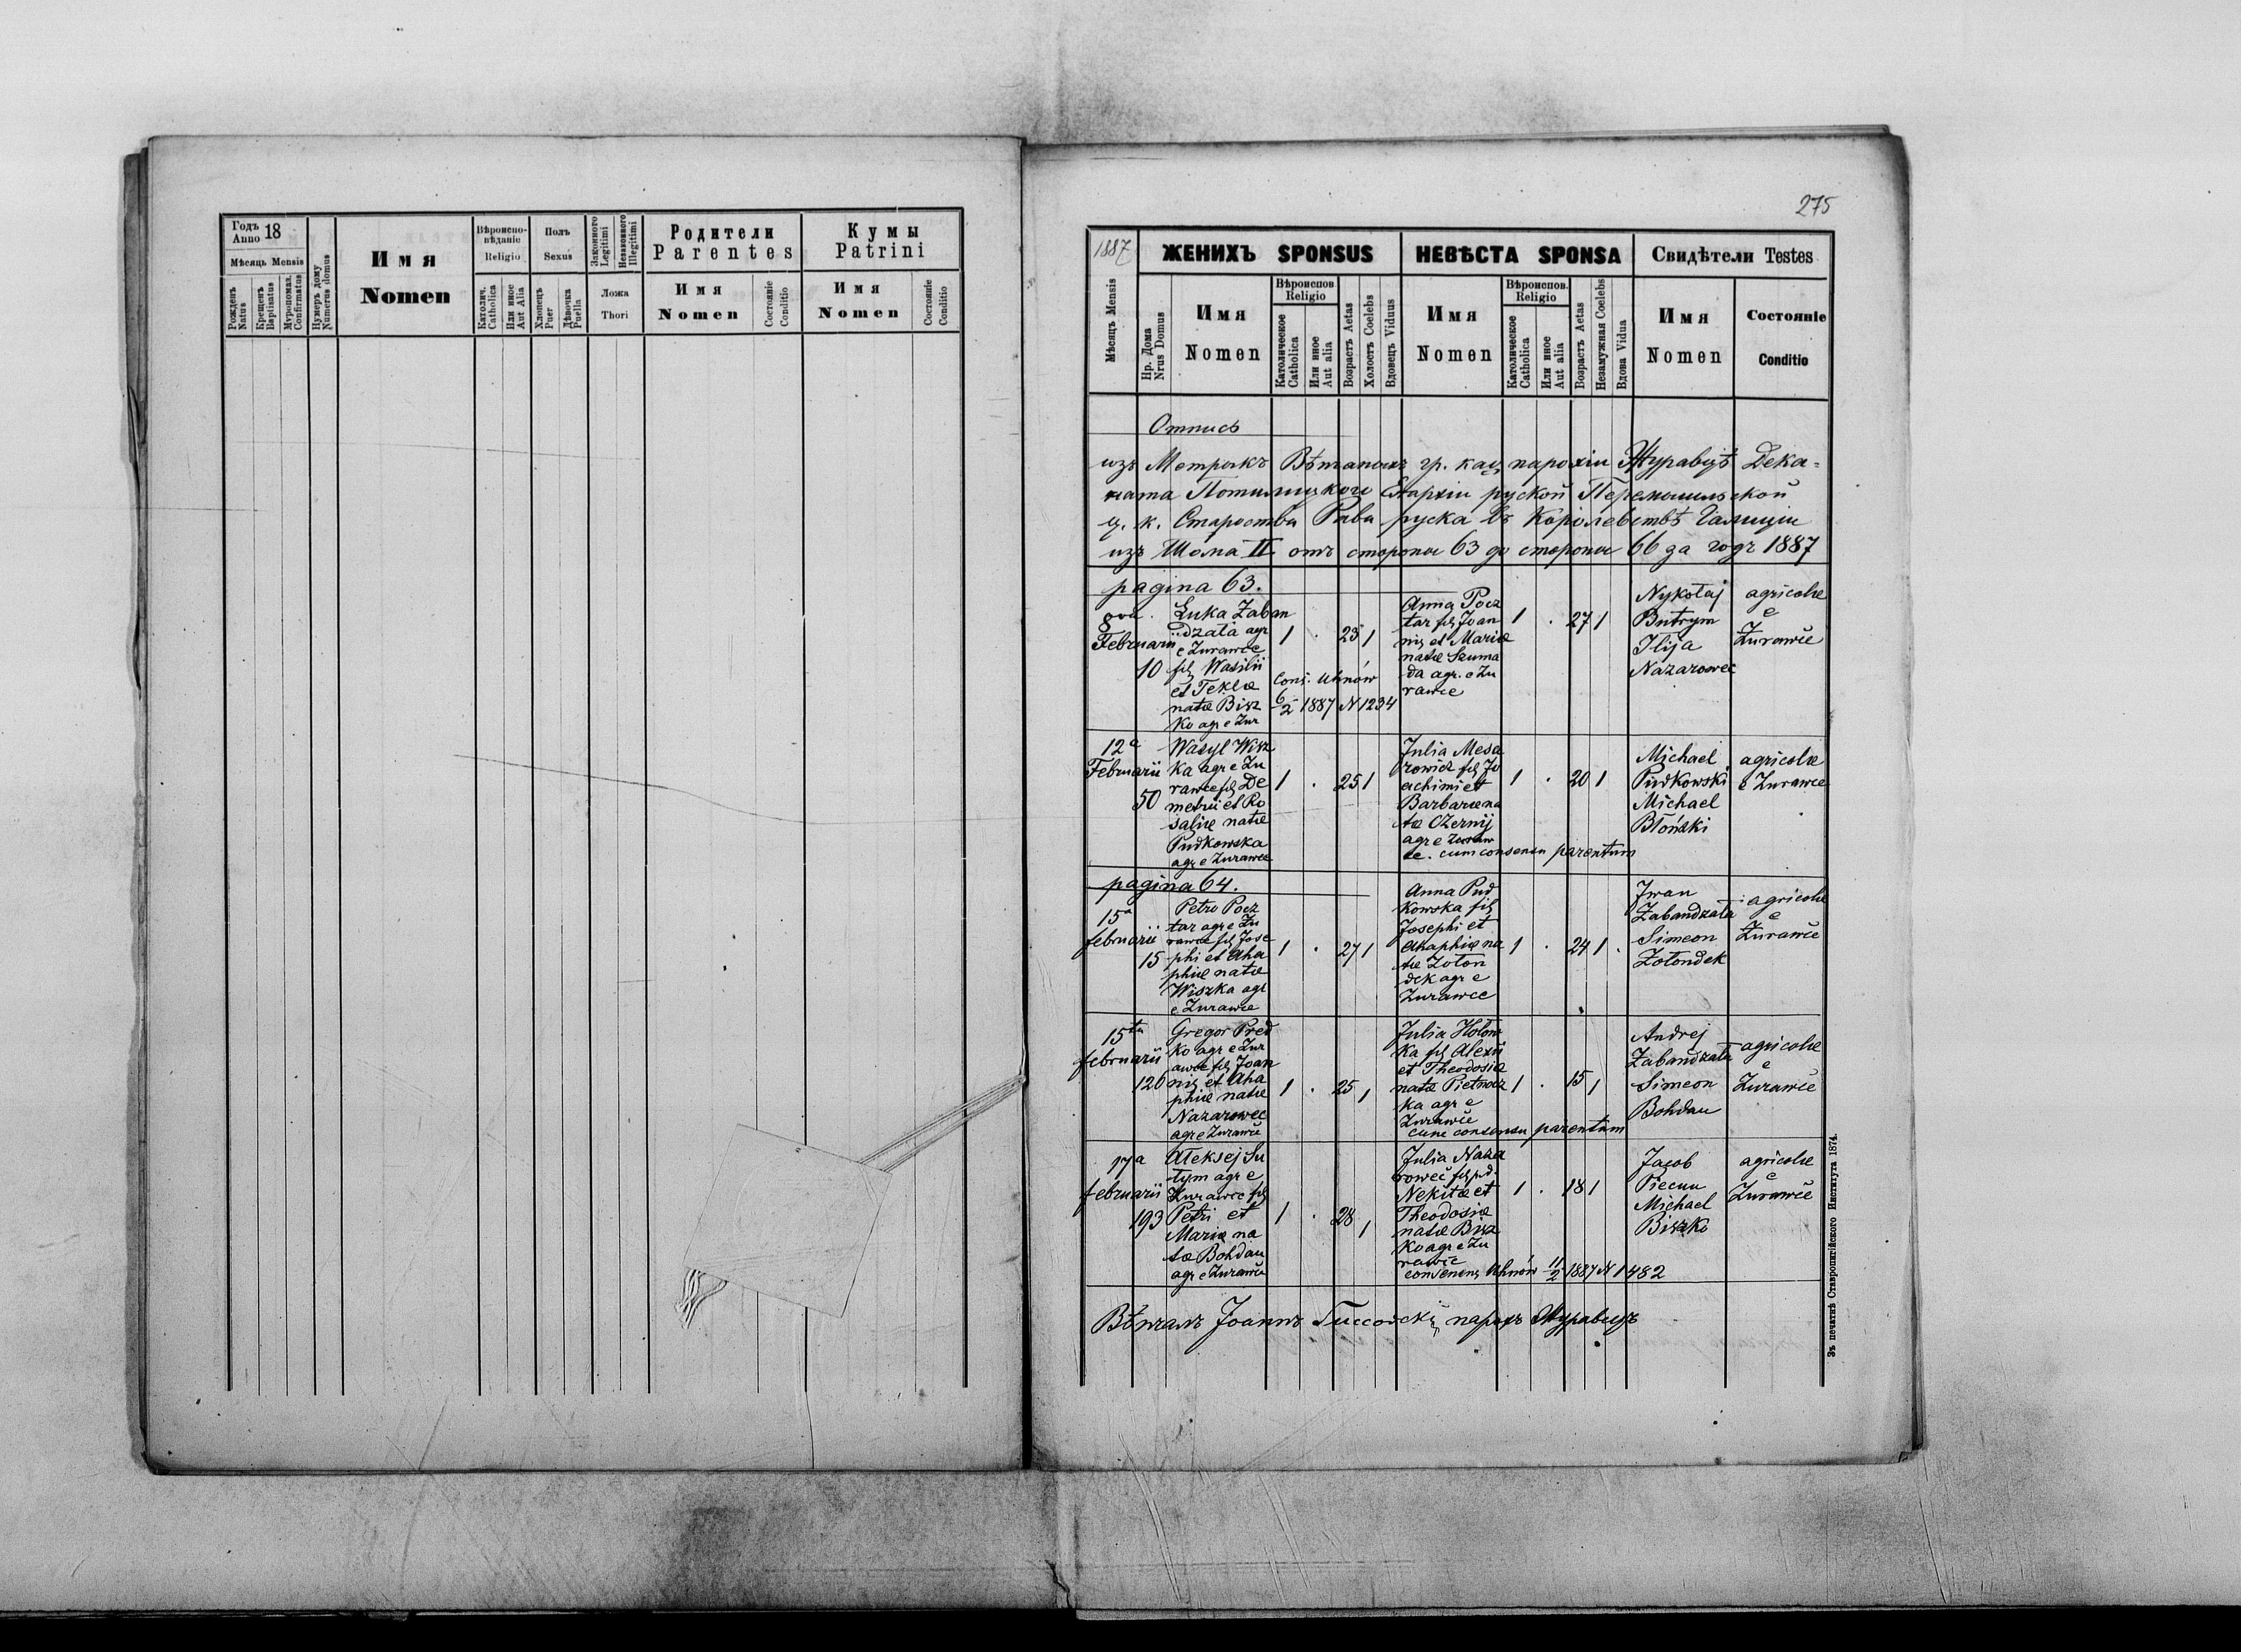 Годъ 18
Anno
Мѣсяцъ Mensis
Рожденъ Natus
Крещенъ Baptisatus
Мѵропомаз. Confirmatus
Нумеръ дому Numerus domus
Имя
Nomen
Вѣроиспо-
вѣданіе
Religio
Католич. Catholica
Или иное Aut Alia
Полъ
Sexus
Хлопецъ Puer
Дѣвочка Puella
Законного Legitimi
Незаконного Illegitimi
Ложа
Thori
Родители
Parentes
Имя
Nomen
Состояніе Conditio
Кумы
Patrini
Имя
Nomen
Состояніе Conditio
275
1887
ЖЕНИХЪ SPONSUS
НЕВѢСТА SPONSA
Свидѣтели Testes
Мѣсяцъ Mensis
Нр. Дома Nrus Domus
Имя
Nomen
Вѣроиспов.
Religio
Католическое Catholica
Или иное Aut alia
Возрастъ Aetas
Холостъ Coelebs
Вдовецъ Viduus
Имя
Nomen
Вѣроиспов.
Religio
Католическое Catholica
Или иное Aut alia
Возрастъ Aetas
Незамужная Coelebs
Вдова Vidua
Имя
Nomen
Состояніе
Conditio
Отпись
изъ Метрикъ Вѣнчаныхъ гр. кат. парохіи Журавцѣ Дека=
ната Потилицкого Епархіи руской Перемышльской
ц. к. Староства Рава руска въ Королевствѣ Галиціи
изъ Тома II отъ стороны 63 до стороны 66 за годъ 1887
pagina 63.
8va
Februarii
10
Łuka Zaban
dzała agr
e Zurawce
fil Wasilii
et Teklæ
natæ Bisz
ko agr e Zur
1 . 23 1
Cons. Uhnów
6/2 1887 N 1234
Anna Pocz
tar fil Joan
nis et Mariæ
natæ Szuma
da agr. e Zu
rawce
1 . 27 1
Nykołaj
Butrym
Ilija
Nazarowec
agricolæ
e
Zurawce
12a
Februarii
50
Wasyl Wisz
ka agr e Zu
rawce fil De
metrii et Ro
saliæ natæ
Pudkowska
agr e Zurawce
1 . 25 1
Julia Mesa
rowicz fil Jo
achimi et
Barbaræ na
tæ Czernij
agr e Zuraw
ce. cum consensu parentum
1 . 20 1
Michael
Pudkowski
Michael
Błoński
agricolæ
e Zurawce
pagina 64.
15a
februarii
15
Petro Pocz
tar agr e Zu
rawce fil Jose
phi et Aha
phiæ natæ
Wiszka agr
e Zurawce
1 . 27 1
Anna Pud
kowska fil
Josephi et
Ahaphiæ na
tæ Zołon
dek agr e
Zurawce
1 . 24 1 .
Iwan
Zabandzała
Simeon
Zołondek
agricolæ
e
Zurawce
15ta
februarii
126
Gregor Pred
ko agr e Zur
awce fil Joan
nis et Aha
phiæ natæ
Nazarowec
agr e Zurawce
1 . 25 1
Julia Hołow
ka fil Alexii
et Theodosiæ
natæ Pietnocz
ka agr e
Zurawce
cum consensu parentum
1 . 15 1
Andrej
Zabandzała
Simeon
Bohdan
agricolæ
e
Zurawce
17a
februarii
193
Aleksej Su
tym agr e
Zurawce fil
Petri et
Mariæ na
tæ Bohdan
agr e Zurawce
1 . 28 1
Julia Naza
rowec fil pd.
Nekitæ et
Theodosiæ
natæ Bisz
ko agr e Zu
rawce
consensus Uhnów 11/2 1887 N 1482
1 . 18 1
Jacob
Piecuu
Michael
Biszko
agricolæ
e
Zurawce
Вѣнчалъ Іоаннъ парохъ Журавцѣ
Зъ печатнѣ Ставропигійского Института 1874.